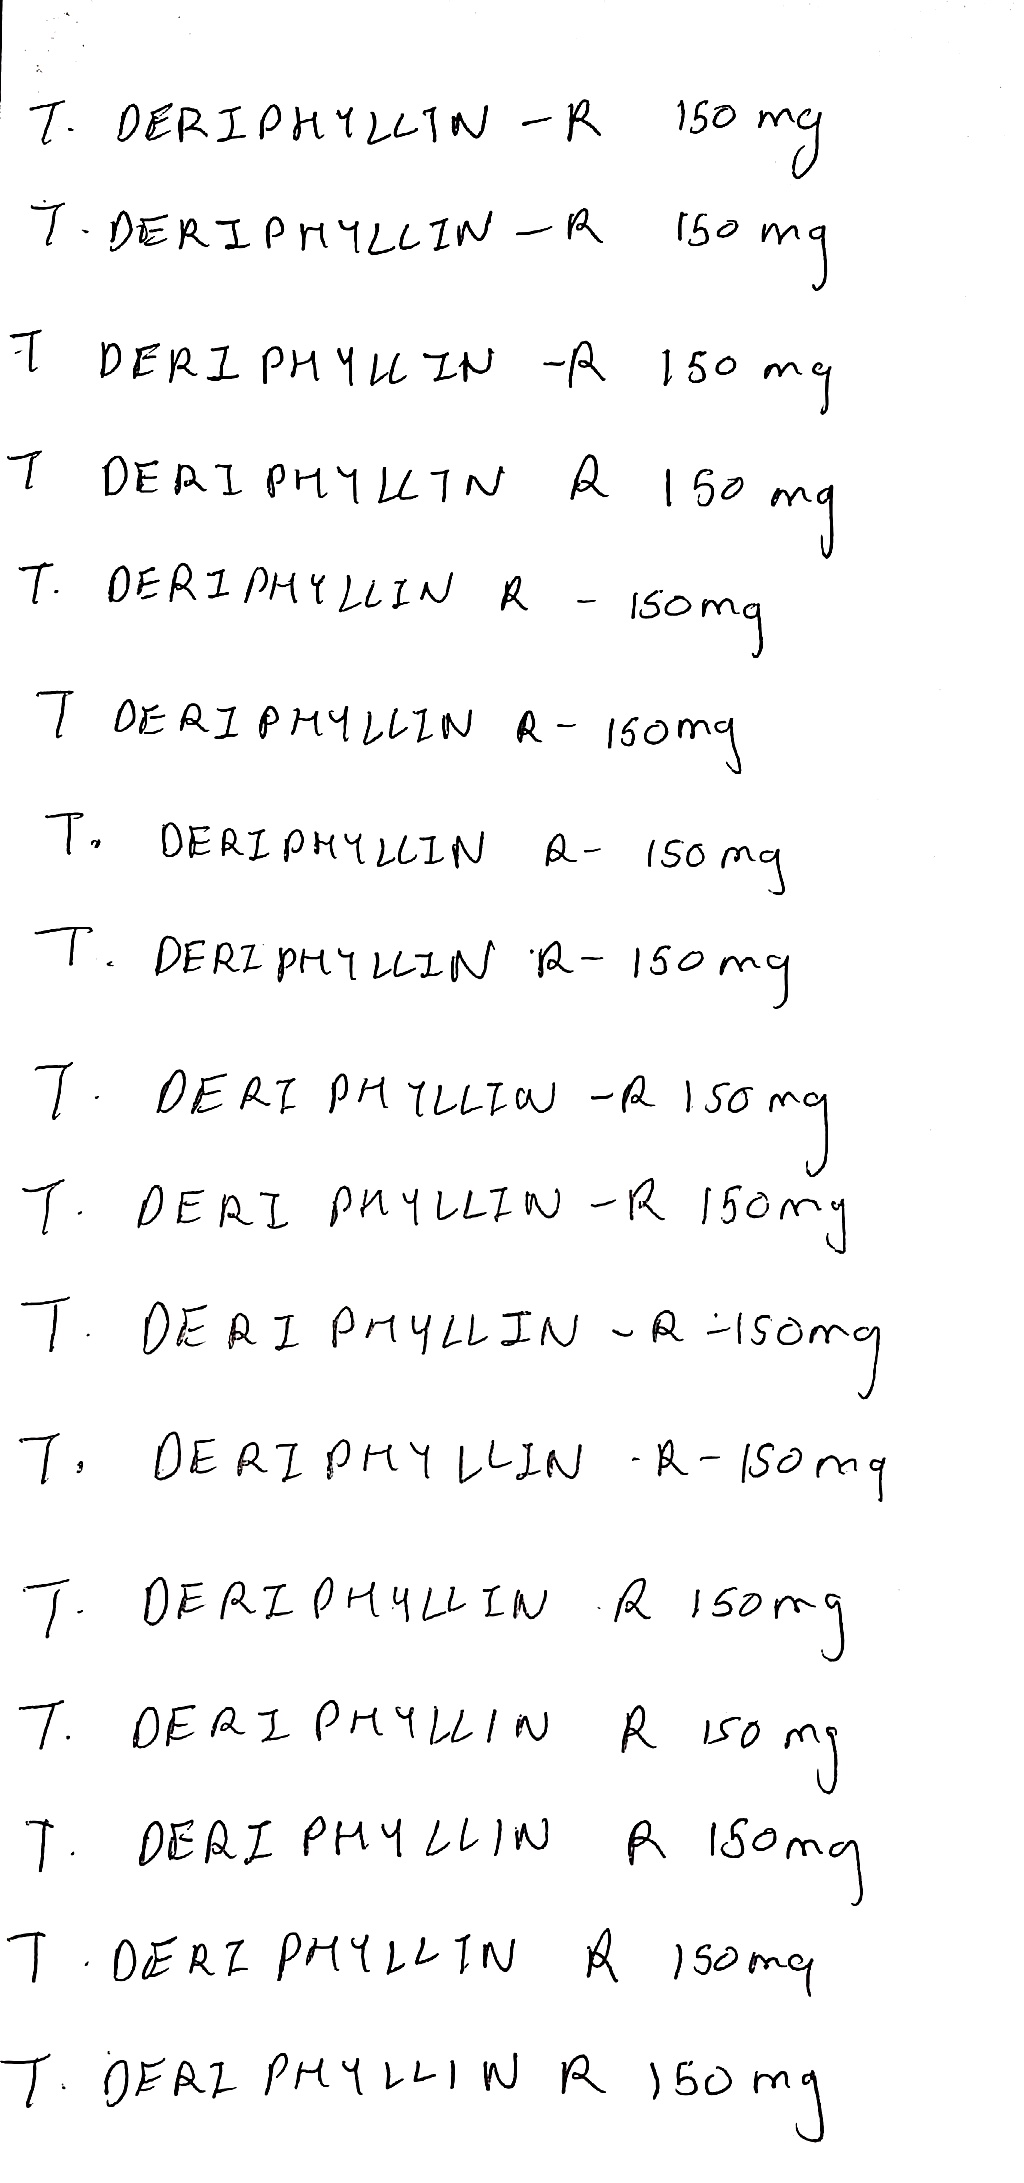 T. DERIPHYLLIN -R 150 mg
T. DERIPHYLLIN -R 150 mg
T DERIPHYLLIN -R 150 mg
T DERIPHYLLIN R 150 mg
T. DERIPHYLLIN R - 150mg
T DERIPHYLLIN R- 150mg
T. DERIPHYLLIN R- 150 mg
T. DERIPHYLLIN R- 150 mg
T. DERIPHYLLIN -R 150 mg
T. DERIPHYLLIN -R 150mg
T. DERIPHYLLIN -R -150mg
T. DERIPHYLLIN -R- 150 mg
T. DERIPHYLLIN R 150mg
T. DERIPHYLLIN R 150 mg
T. DERIPHYLLIN R 150mg
T. DERIPHYLLIN R 150mg
T. DERIPHYLLIN R 150 mg